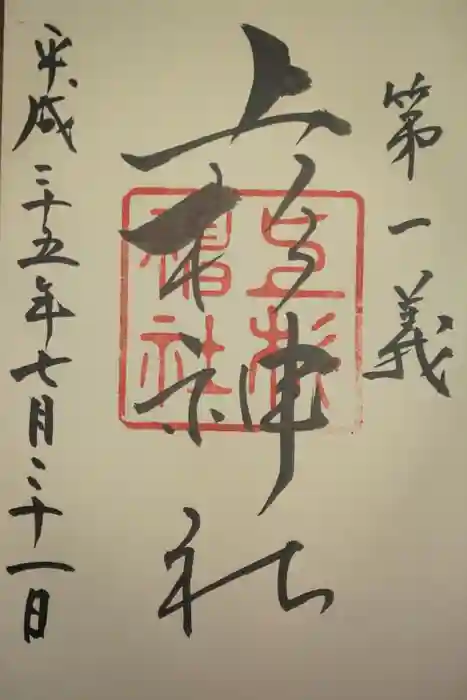 第一義
上杉神社
上杉
神社
平成二十五年七月二十一日